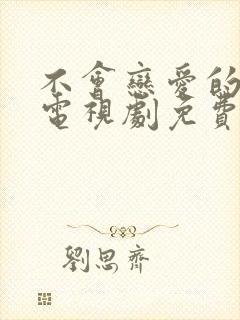 不會戀愛的
電視劇免費
劉思齊